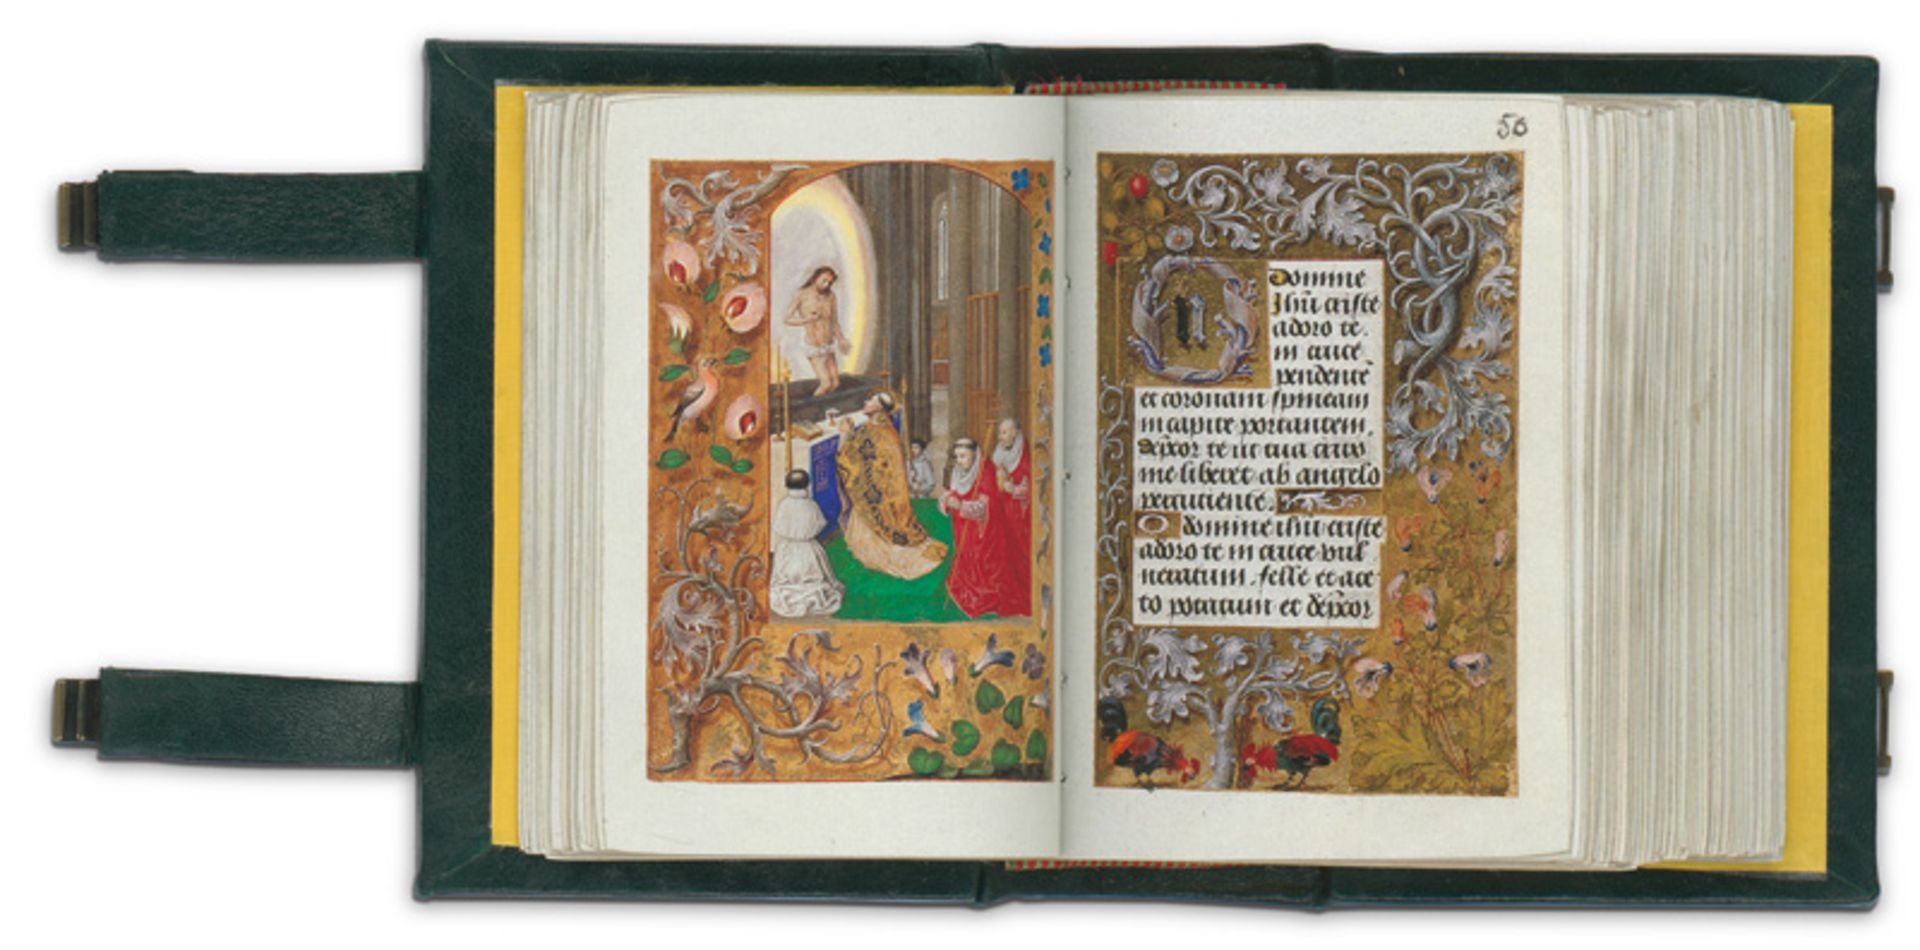 56
O domine
Ihu criste
adoro te
in cruce
pendente
et coronam spineam
in capite portantem,
depcor te ut tua crux
me liberet ab angelo
percutiente.
O domine ihu criste
adoro te in cruce vul
neratum. felle et ace
to potatum et depcor